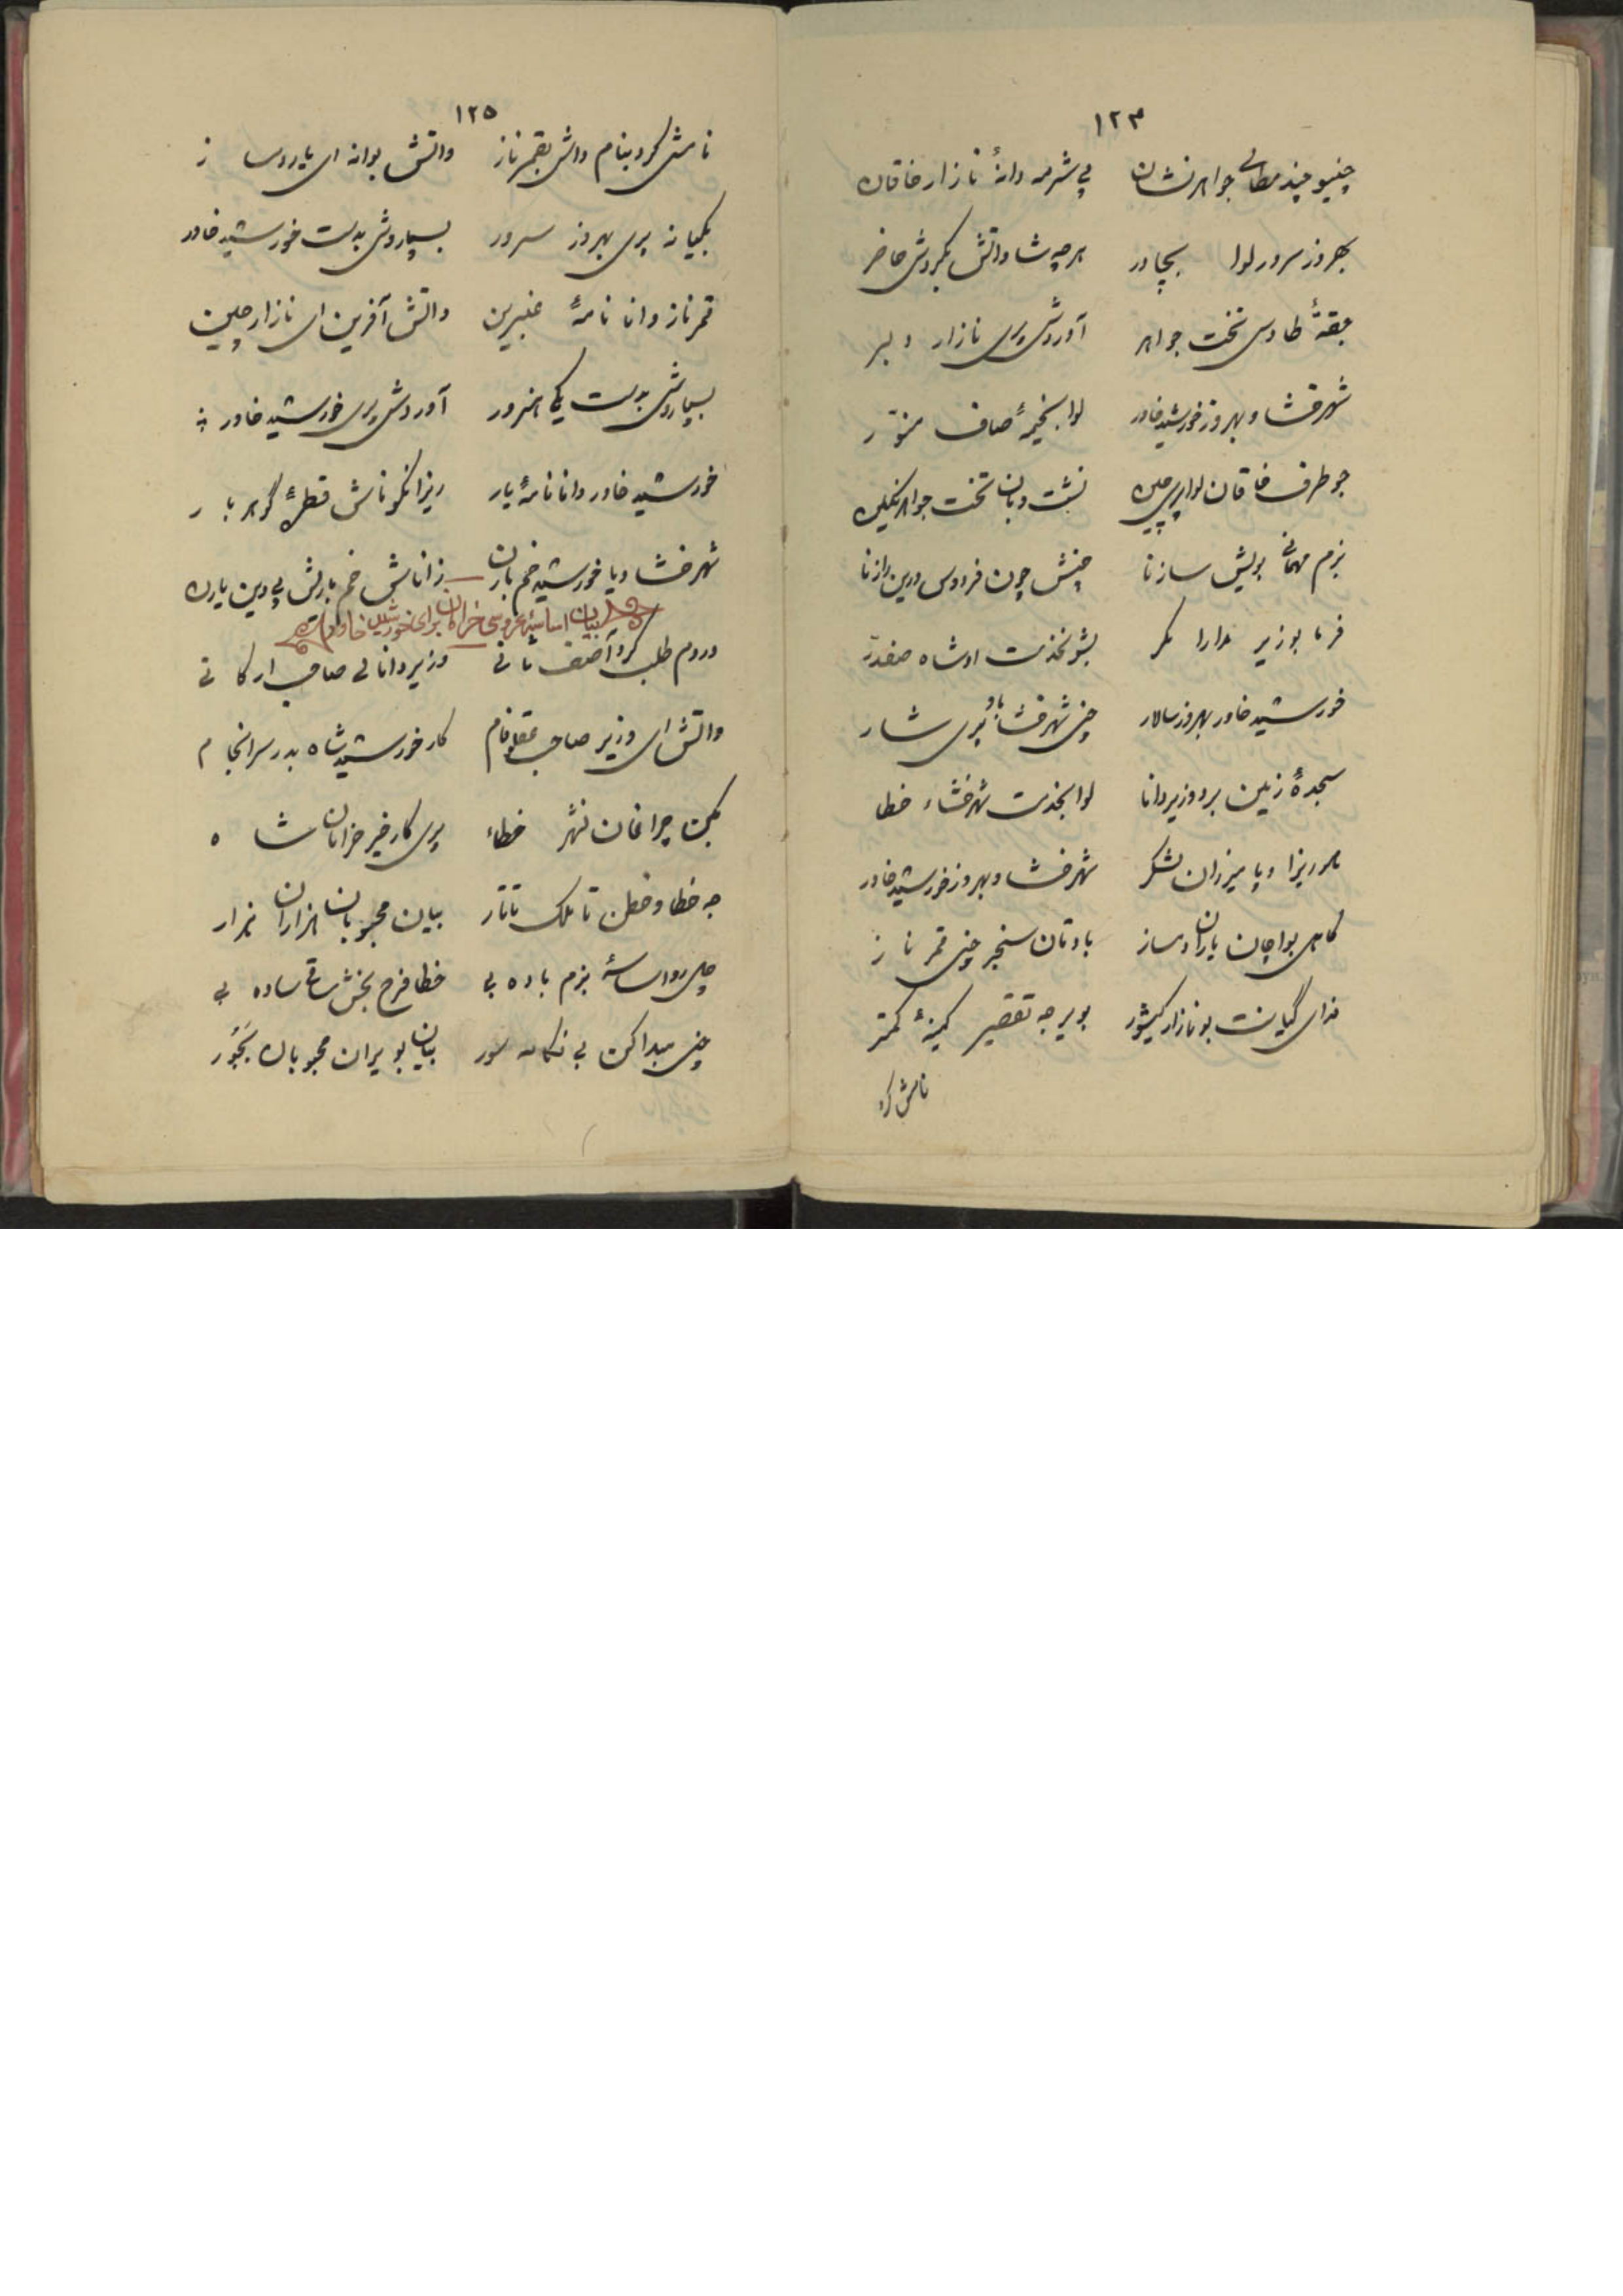 ۱۲۴
چنیو چند مطای جواهرنشان پی شرمه دانهٔ نازار خاقان
بهروز سرور لوا بچادر هرچه شا واتش بکردش حاضر
جقهٔ طاوس تخت جواهر آوردش پری نازار دلبر
شهرفشا و بهروز خورشید خاور لوا بخیمهٔ صاف منور
جو طرف خاقان لوا پی چین نشت وبان تخت جواهر نگین
بزم مهمانی پریش سازنا چنش چون فردوس ورین رازنا
فرما بوزیر مدارا مکر بشو بخدمت اوشاه صفدر
خورشید خاور بهروز سالار چنی شهرفشا باور پری شار
سجدهٔ زمین برد وزیر دانا لوا بخدمت شهرفشاء خطا
مرریزا و پا میرزان لشکر شهرفشا و بهروز خورشید خاور
کاهی بواچان یاران دمساز باوتان سنجر چنی قمرناز
فدای گیانت بو نازار کیشور بویر جه تقصیر کمینهٔ کمتر
نامش کرد
۱۲۵
نامش کرد بنام داش بقمرناز واتش بوانه ای یار دمساز
بکیانه پری بهروز سرور بسپاردش بدست خورشید خاور
قمرناز وانا نامهٔ عنبرین واتش آفرین ای نازار چین
بسپاردش بدست یکی هنرور آوردش پری خورشید خاور
خورشید خاور وانا نامهٔ یار ریزا نکوناش قطرهٔ گوهربار
شهرفشا و یا خورشید خم باران زاناش خم بارش پی دین یاران
بیان اساسهٔ عروسی خرامان برای خورشید خاور
وروم طلب کرد آصف ثانی وزیر دانای صاحب ارکانی
واتش ای وزیر صاحب عقل و فام کار خورشید شاه بدر سرانجام
بکن چراغان شهر خطاء پری کار خیر خرامان شاه
جه خطا و ختن تا ملک تاتار بیان محبوبان هزاران هزار
چل رو اساسهٔ بزم باده بی خطا فرح بخش ساقی ساده بی
چنی صدا کن بی نکامه سور بیان بویران محبوبان بجور